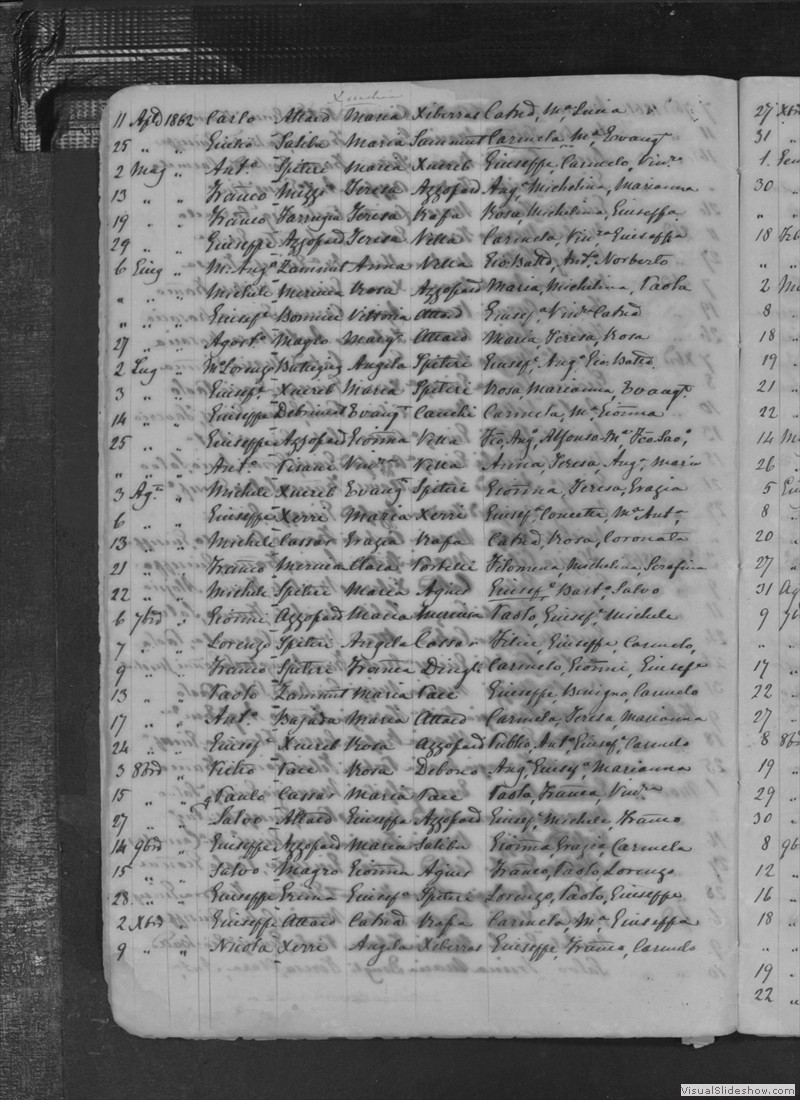 11 Apl 1862 Carlo Attard Maria Xiberras Catrd, Ma Lucia
25 " " Giulio Saliba Maria Sammut Carmela, Ma, Evangta
2 Mag " Anta Spiteri Maria Xuereb Giuseppe, Carmelo, Vinza
13 " " Franco Muzzi Teresa Azzopard Anga, Michelina, Marianna
19 " " Franco Farrugia Teresa Vrafa Rosa, Michelina, Giuseffa
29 " " Giuseppe Azzopard Teresa Vella Carmela, Vinza Giuseffa
6 Giug " M. Anga Zammit Anna Vella Gio Batta, Anto Norberto
" " " Michele Rosa Azzopard Maria, Michelina, Paola
" " " Giusefa Bonnici Vittoria Attard Giusefa Vinza Catrd
27 " " Agosto Magro Margta Attard Maria, Teresa, Rosa
2 Lug " Ma Lorenzo Buttigieg Angela Spiteri Giusefe, Anga Gio Batta
3 " " Giusefa Xuereb Maria Spiteri Rosa, Marianna, Evangta
14 " " Giuseppe Evangta Cauchi Carmela, Ma Gionna
25 " " Giuseppe Azzopard Gionna Vella Alfonso Ma
" " " Anto Pisani Vinza Vella Anna, Teresa, Anga, Maria
3 Agto " Michele Xuereb Evangta Spiteri Gionna, Teresa, Grazia
6 " " Giuseppe Xerri Maria Xerri Giusefa, Concetta, Ma Anta
13 " " Michele Cassar Grazia Vrafa Catrd, Rosa, Coronata
21 " " Franco Clara Portelli Filomena, Michelina, Serafina
22 " " Michele Spiteri Maria Agius Giusefa Barto Salvo
6 7bre " Gionni Azzopard Maria Paolo, Giusefe, Michele
7 " " Lorenzo Spiteri Angela Cassar Felice, Giuseppe, Carmelo,
9 " " Franco Spiteri Franca Dingli Carmelo, Gionni, Giusefa
13 " " Paolo Zammit Maria Pace Giuseppe, Benigno, Carmelo
17 " " Anto Bajada Maria Attard Carmela, Teresa, Marianna
24 " " Giusefe Xuereb Rosa Azzopard Publio, Anto Giusefe, Carmelo
3 8bre " Pietro Pace Rosa Debono Anga, Giusefa, Marianna
15 " " Paulo Cassar Maria Pace Paola, Franca, Vinza
27 " " Salvo Attard Giuseppa Azzopard Giusefe, Michele, Franco
14 9bre " Giuseppe Azzopard Maria Saliba Gionna, Grazia Carmela
15 " " Salvo Magro Gionna Agius Franco, Paolo, Lorenzo
28 " " Giuseppe Grima Giusefa Spiteri Lorenzo, Paolo, Giuseppe
2 Xbre " Giuseppe Attard Catrd Vrafa Carmela, Ma, Giuseffa
9 " " Nicola Xerri Angela Xiberras Giuseppe, Franco, Carmelo
27 Xbr
31 "
1
30 "
" "
18
" "
2
8 "
18 "
19 "
21 "
22 "
14
26 "
5
8 "
20 "
27 "
31 Ag
9
" "
17 "
22 "
27 "
8 8br
19 "
29 "
30 "
8 9b
12 "
16 "
18 "
" "
19 "
22 "
VisualSlideshow.com